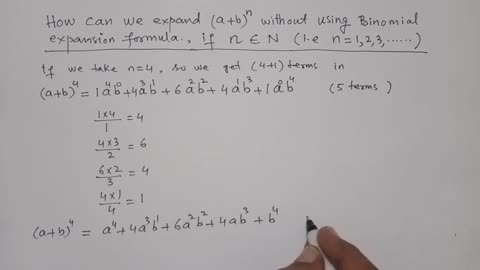 How can we expand (a+b)^n without using Binomial
expansion formula., if n ∈ N (i.e n=1,2,3,......)
If we take n=4, so we get (4+1) terms in
(a+b)^4 = 1 a^4 b^0 + 4 a^3 b^1 + 6 a^2 b^2 + 4 a^1 b^3 + 1 a^0 b^4 (5 terms)
1×4/1 = 4
4×3/2 = 6
6×2/3 = 4
4×1/4 = 1
(a+b)^4 = a^4 + 4a^3 b^1 + 6a^2 b^2 + 4ab^3 + b^4